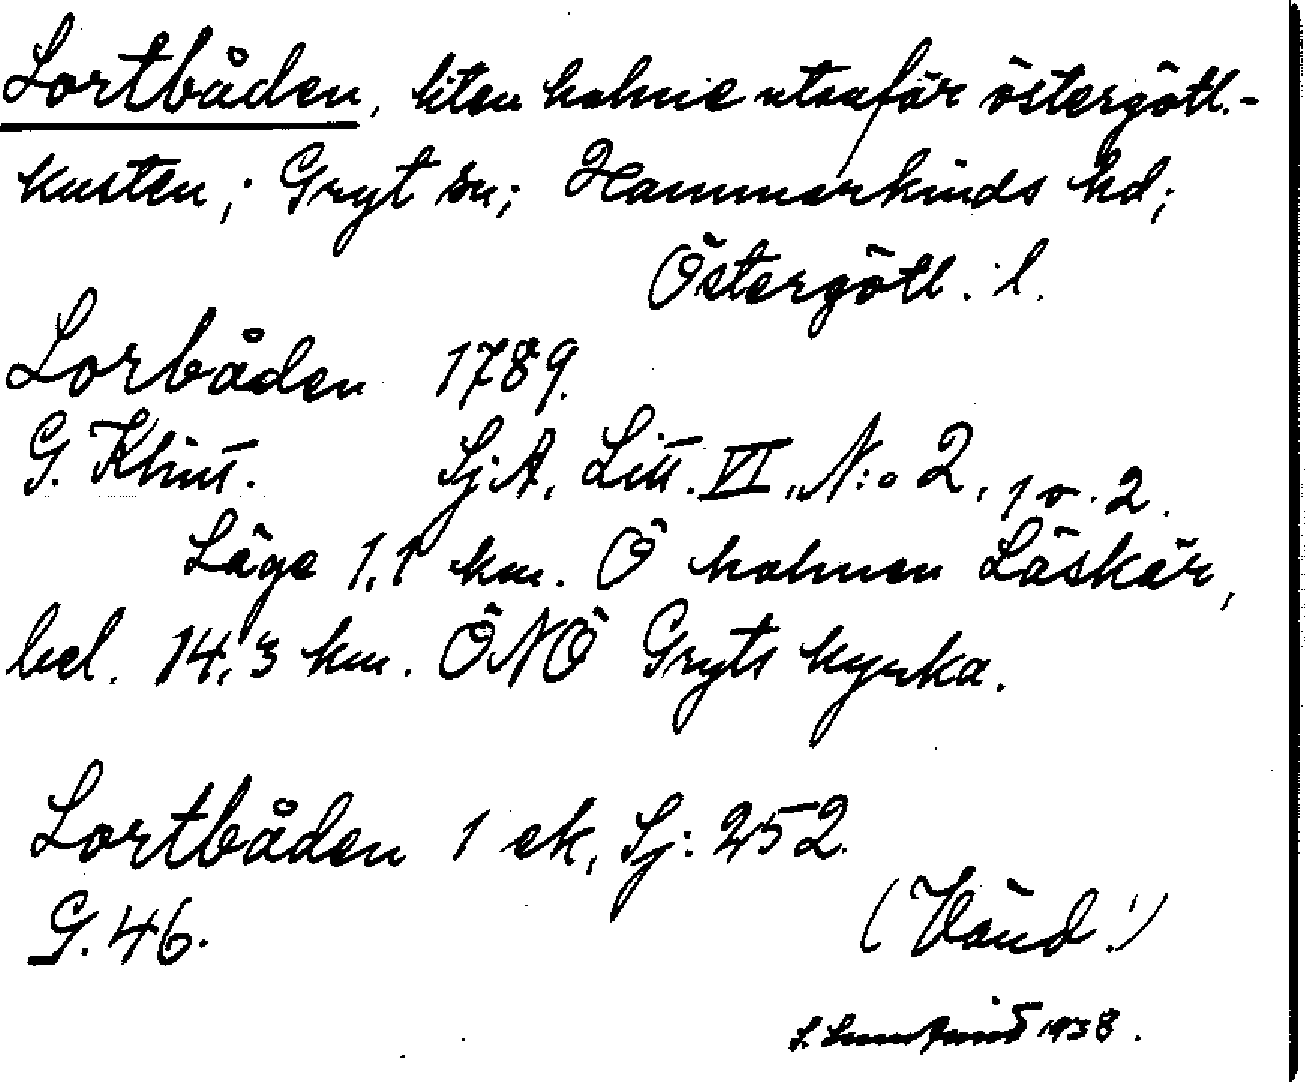 Lortbåden, liten holme utanför östergötl.-
kusten; Gryt sn; Hammarkinds hd;
Östergötl. l.
Lorbåden 1789.
G. Klint. Sj.A, Litt. VI, N:o 2, 1 o. 2.
Läge 1,1 km. Ö holmen Läskär,
bel. 14,3 km. ÖNÖ Gryts kyrka.
Lortbåden 1 ek, Sj: 252.
G. 46.
(Vänd!)
1938.